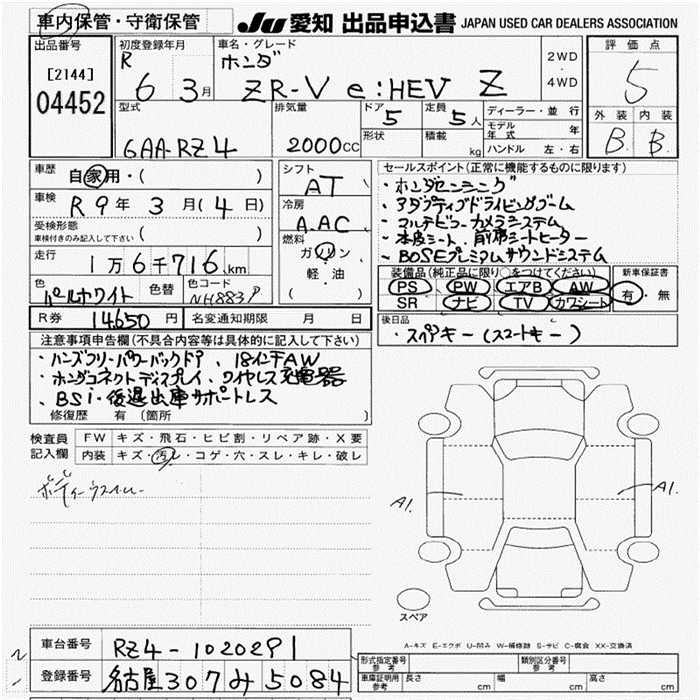 車内保管・守衛保管
JU 愛知 出品申込書 JAPAN USED CAR DEALERS ASSOCIATION
出品番号
[2144]
04452
初度登録年月
R 6 3月
車名・グレード
ホンダ
ZR-V e:HEV Z
2WD
・
4WD
評価点
5
外装 内装
B B
型式
6AA-RZ4
排気量
2000cc
ドア
5
定員
5人
形状
積載
kg
ディーラー・並行
モデル年式 年
ハンドル 左・右
車歴
自家用・( )
車検
R9年3月(4日)
受検形態
車検付きのみ記入して下さい ( )
走行
1万6千716km
色
パールホワイト
色替
色コード
NH883P
シフト
AT
冷房
AAC
燃料
ガソリン
軽油
( )
セールスポイント(正常に機能するものに限ります)
・ホンダセンシング
・アダプティブドライビングビーム
・マルチビューカメラシステム
・本皮シート、前席シートヒーター
・BOSEプレミアムサウンドシステム
装備品(純正品に限り○をつけてください)
PS PW エアB AW
SR ナビ TV カワシート
新車保証書
有・無
R券 14650円
名変通知期限 月 日
後日品
・スペアキー(スマートキー)
注意事項申告欄(不具合内容等は具体的に記入して下さい)
・ハンズフリーパワーバックドア、18インチAW
・ホンダコネクトディスプレイ、ワイヤレス充電器
・BSi・後退出庫サポートレス
修復歴 有(箇所 )
検査員記入欄
FW キズ・飛石・ヒビ割・リペア跡・X要
内装 キズ・汚レ・コゲ・穴・スレ・キレ・破レ
A1.
A1.
スペア
A-キズ E-エクボ U-凹み W-補修跡 S-サビ C-腐食 XX-交換済
車台番号
RZ4-1020291
登録番号
名古屋307み5084
形式指定番号
参考
類別区分番号
参考
車庫証明用
参考
長さ cm
幅 cm
高さ cm